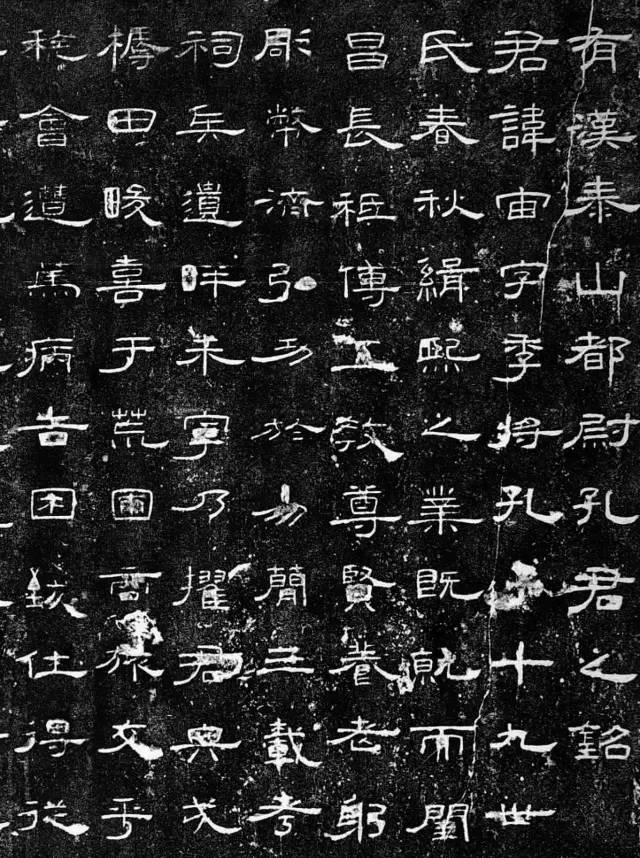 有漢泰山都尉孔君之銘
君諱宙字季將孔十九世
氏春秋緝熙之業既就而閨
昌長祗傅五教尊賢養老躬
彫幣濟弘功於易簡三載考
祠兵遺畔未寧乃擢君典戎
槈田畯喜于荒圃商旅交乎
稔會遭篤病告困致仕得從